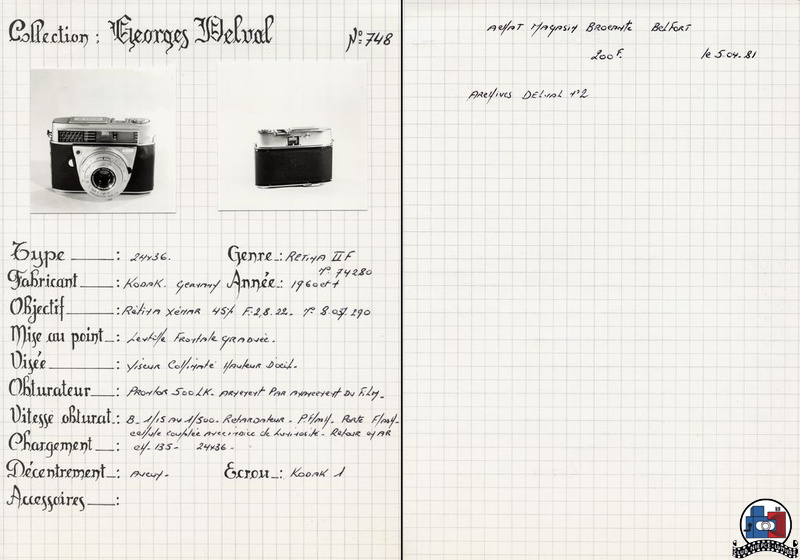 Collection : Georges Delval
N° 748
Type : 24x36.
Genre : Retina II F
N° 74280
Fabricant : Kodak. Germany
Année : 1960
Objectif : Rétina Xénar 45% F.2,8.22. N° 8.057.290
Mise au point : Lentille Frontale graduée.
Visée : Viseur Collimaté Hauteur D'œil.
Obturateur : Prontor 500LK. Armement Par avancement Du Film.
Vitesse obturat. : B_1/15 au 1/500. Retardateur. P.Flash. Porte Flash.
cellule couplée avec indice de Luminosité. Retour
Chargement : ch. 135. 24x36.
Décentrement : Aucun.
Ecrou : Kodak 1
Accessoires :
Achat Magasin Brocante Belfort
200 F. le 5.04.81
Archives Delval N°2